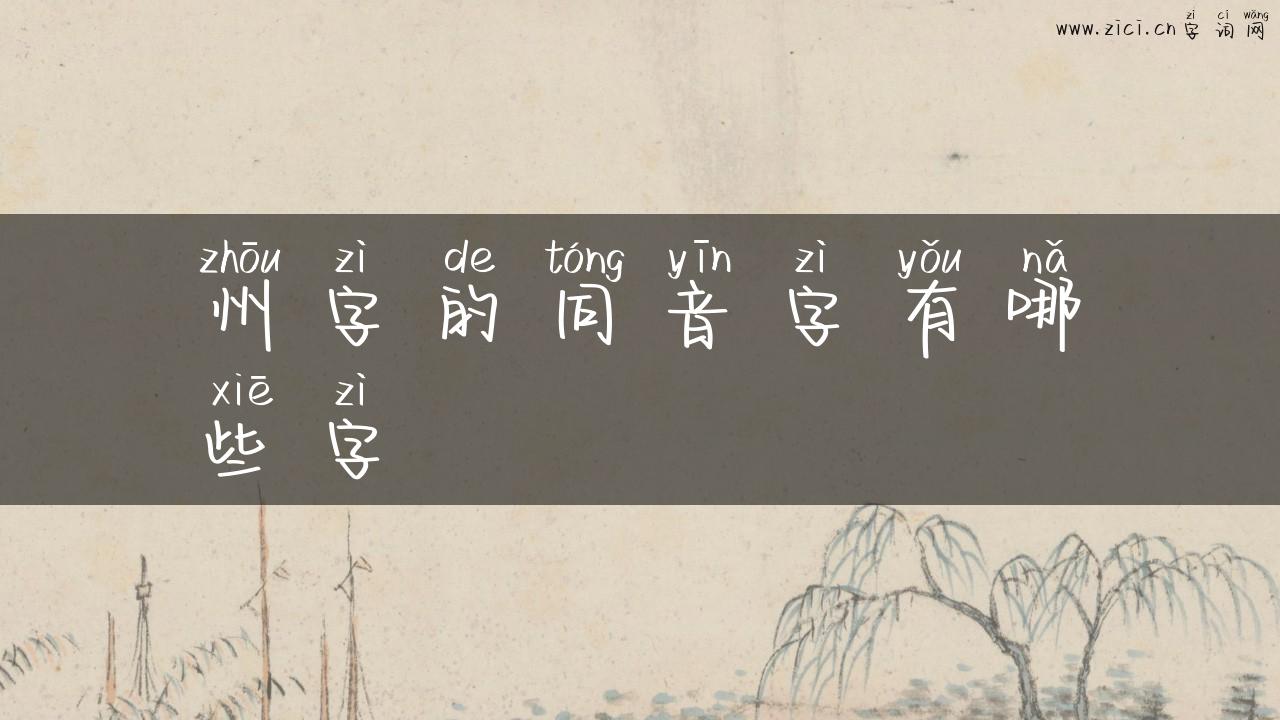 zì cí wǎng
www.zici.cn 字词网
zhōu zì de tóng yīn zì yǒu nǎ
州字的同音字有哪
xiē zì
些字